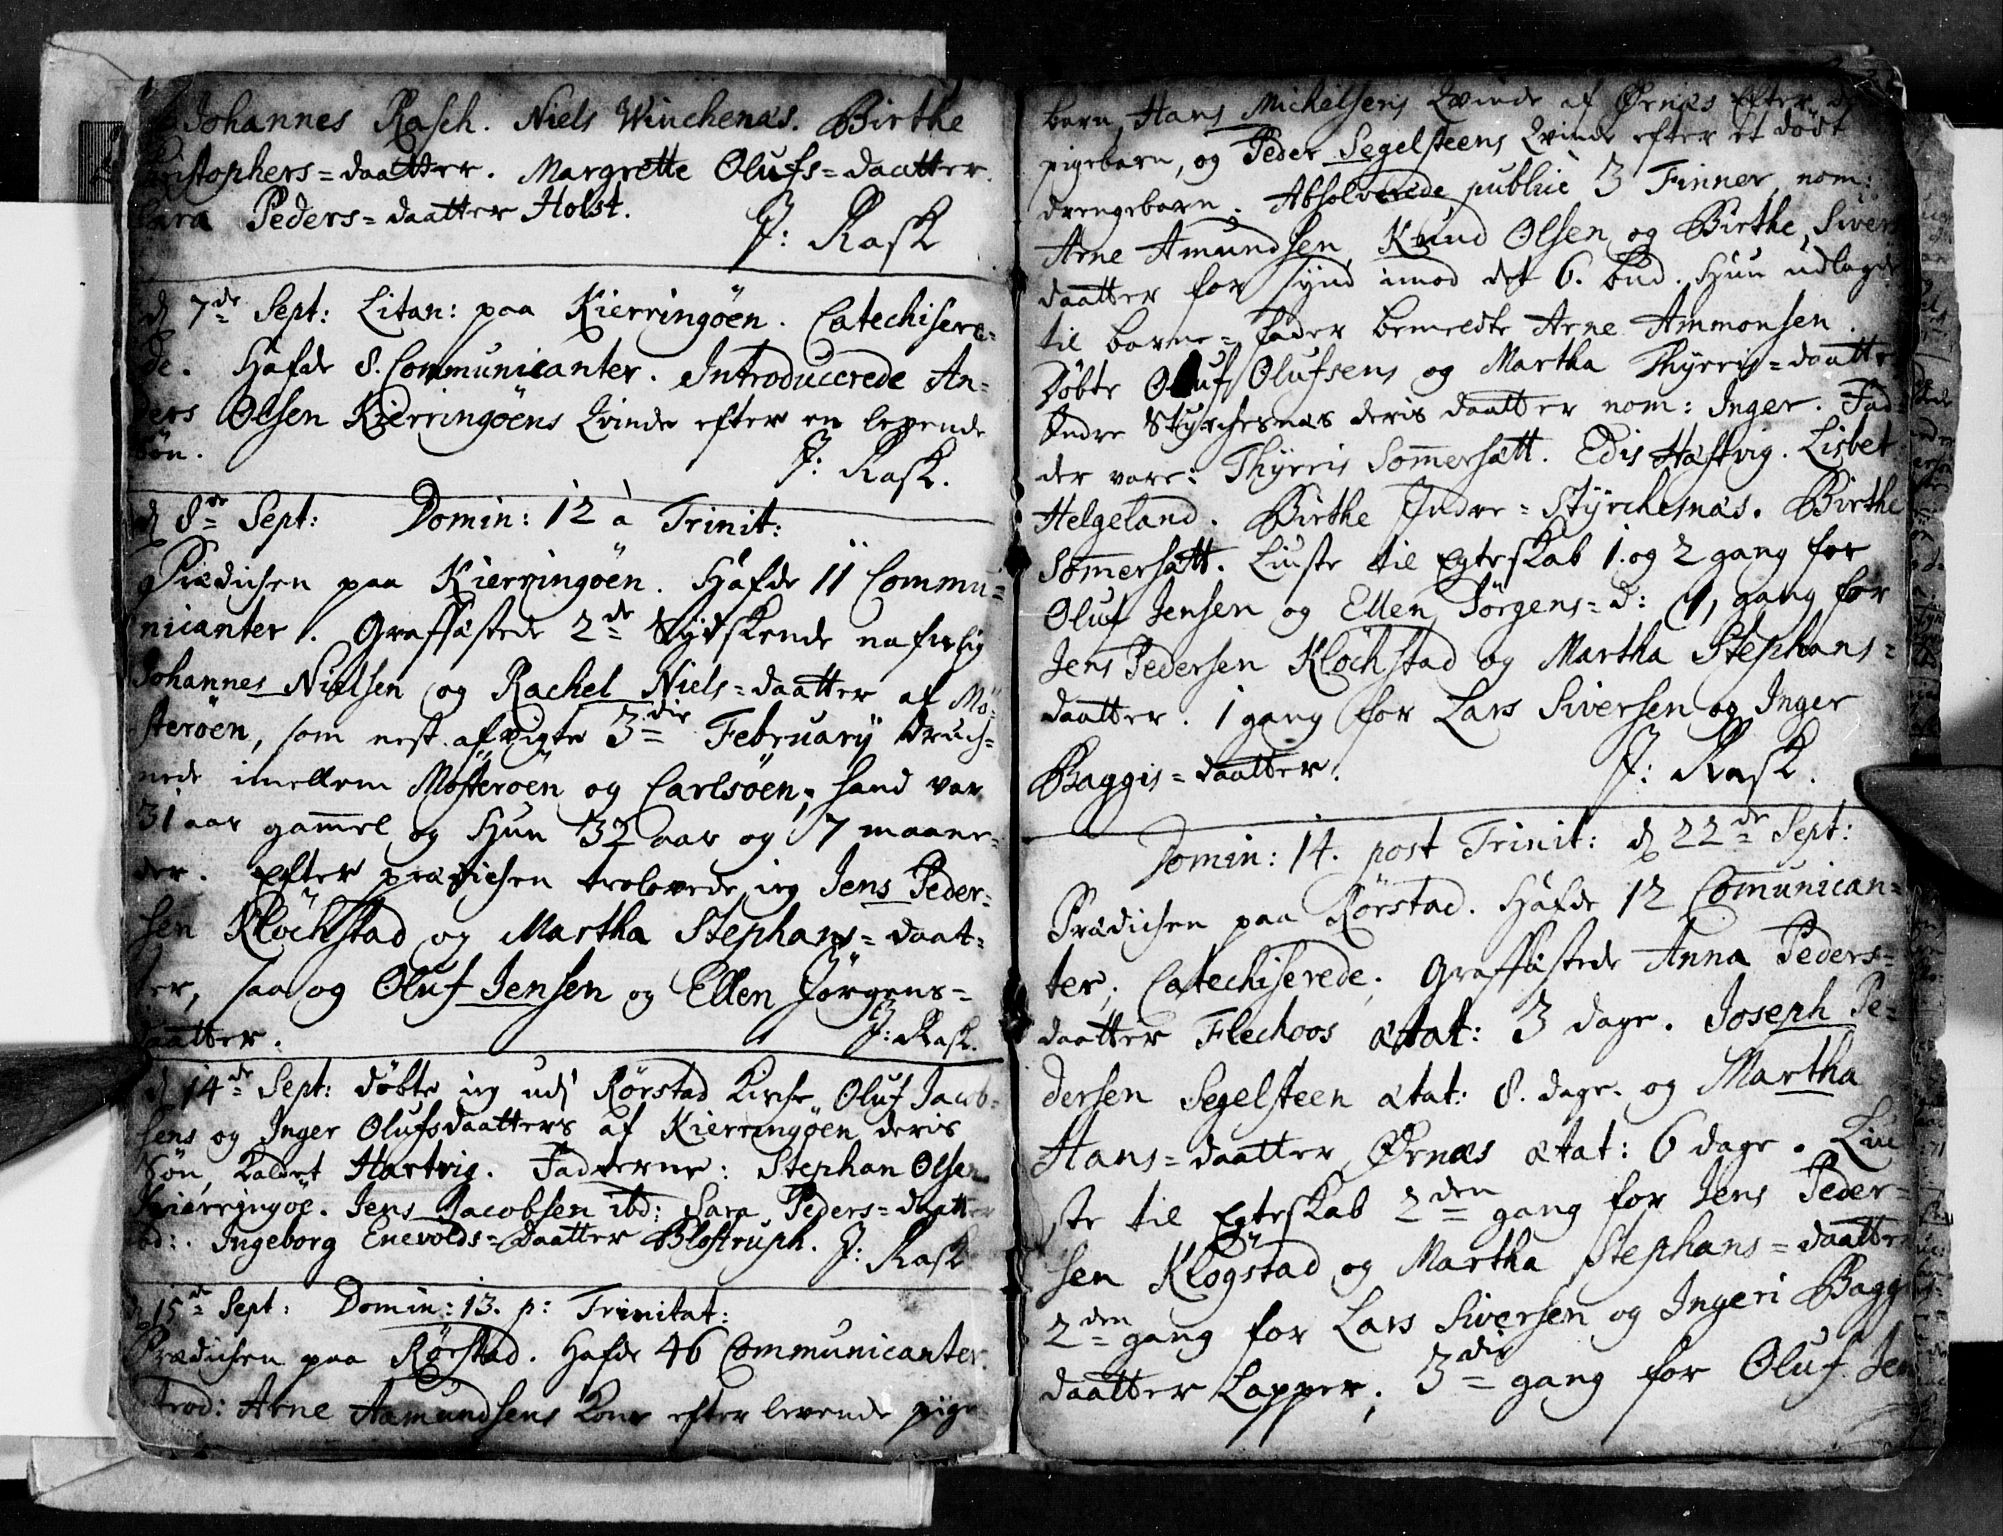 Johannes Rasch. Niels Winchenæs. Birthe
Christophers=daatter. Margrette Olufs=daatter.
Sara Peders=daatter Holst.
J: Rask
d 7de Sept: Litan: paa Kierringöen. Catechisere=
de. Hafde 8. Communicanter. Introducerede An=
ders Olsen Kierringöens Qvinde efter en levende
Sön.
J: Rask.
d 8de Sept: Domin: 12 à Trinit:
Prædichen paa Kierringöen. Hafde 11 Commu=
nicanter. Graffæstede 2de Sydskende nafnlig
Johannes Nielsen og Rachel Niels=daatter af Mö=
steröen, som nest afvigte 3die February druch=
nede imellem Mösteröen og Carlsöen; hand var
31 aar gammel og Hun 32 aar og 7 maane=
der. Efter prædichen trolovede ieg Jens Peder=
sen Klöchstad og Martha Stephans=daat=
ter, saa og Oluf Jensen og Ellen Jörgens=
daatter.
J: Rask.
d 14de Sept: döbte ieg udj Rörstad Kirche Oluf Jacob=
sens og Inger Olufsdaatters af Kierringöen deris
Sön, kaldet Hartvig. Fadderne: Stephan Olsen
Kierringöe. Jens Jacobsen ibd: Sara Peders=daatter
ibd:. Ingeborg Enevolds=daatter Blostruph.
J: Rask
d 15de Sept: Domin: 13. p: Trinitat:
Prædichen paa Rörstad. Hafde 46 Communicanter.
Introd: Arne Aamundsens Kone efter levende pige
barn, Hans Michelsens Qvinde af Örnæs efter
pigebarn, og Peder Segelsteens Qvinde efter et dödt
drengebarn. Absolverede publicè 3 Finner, nom:
Arne Amundsen, Knud Olsen og Birthe Sivers
daatter for synd imod det 6. bud. Hun udlagde
til barne=fader bemeldte Arne Ammonsen.
Döbte Oluf Olufsens og Martha Thyrris=daatter
Indre Styrchesnæs deris daatter nom: Inger. Fad=
der vare: Thyrris Sommersætt. Edis Hæstvig. Lisbet
Helgeland. Birthe Indre=Styrchesnæs. Birthe
Sommersætt. Liuste til Egteskab 1. og 2 gang for
Oluf Jensen og Ellen Jörgens=d: 1, gang for
Jens Pedersen Klöchstad og Martha Stephans=
daatter. 1 gang for Lars Siversen og Inger
Baggis=daatter.
J: Rask.
Domin: 14. post Trinit: d 22de Sept:
Prædichen paa Rörstad. Hafde 12 Communican=
ter; Catechiserede; Graffæstede Anna Peders=
daatter Flechoos ætat: 3 dage. Joseph Pe=
dersen Segelsteen ætat: 8. dage. og Martha
Hans=daatter Örnæs ætat: 6 dage. Liu
ste til Egteskab 2den gang for Jens Peder=
sen Klögstad og Martha Stephans=daatter
2den gang for Lars Siversen og Ingeri Bagg
daatter Lapper; 3die gang for Oluf Jen